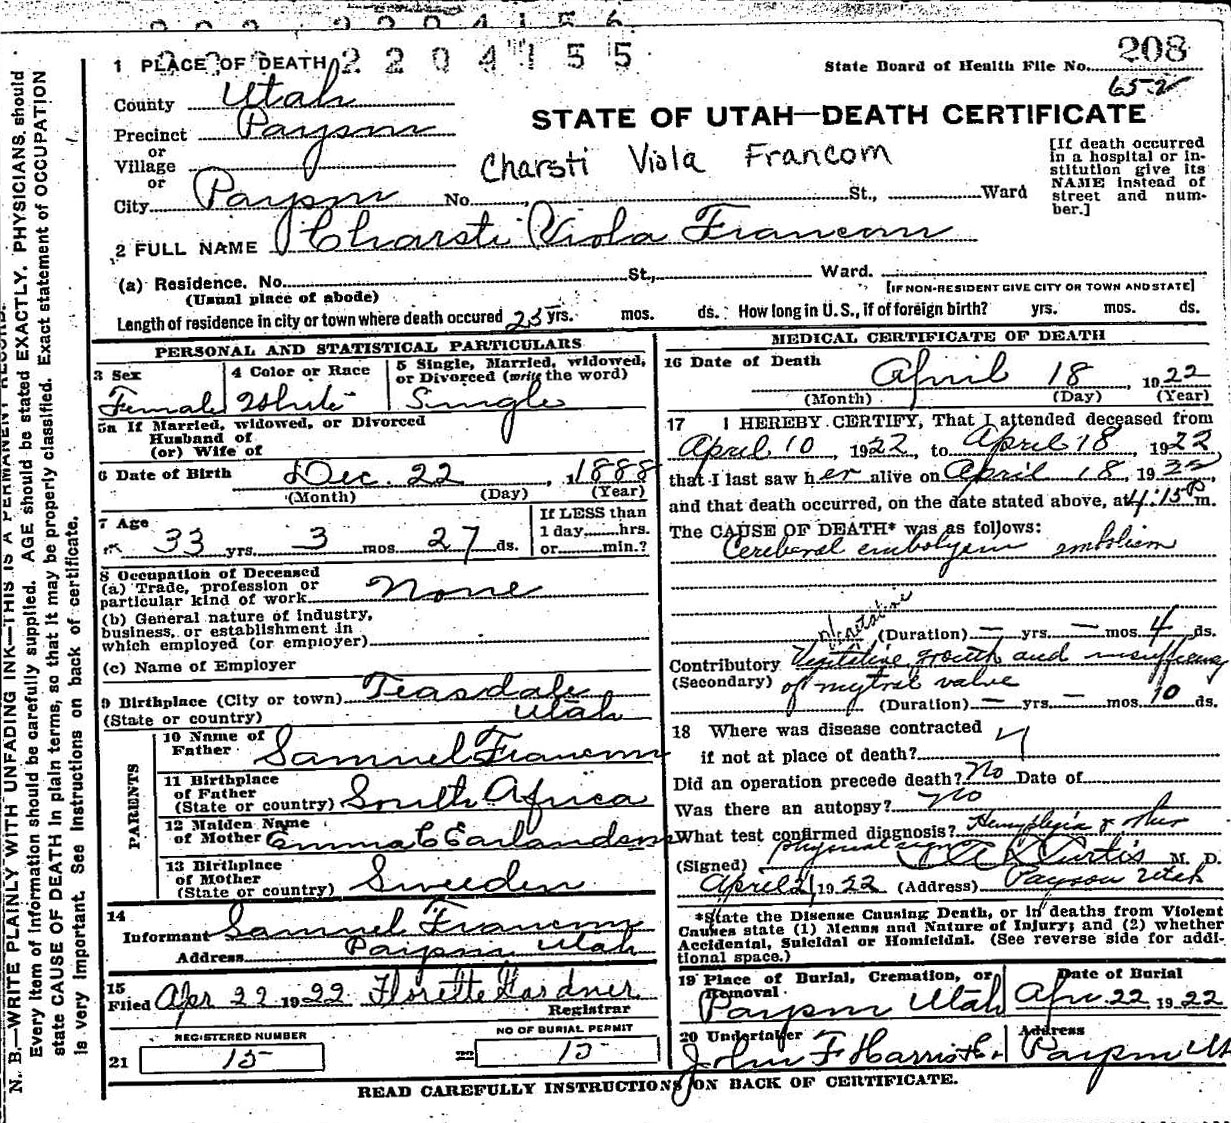 2204155
208
State Board of Health File No.
652
1 PLACE OF DEATH
County Utah
STATE OF UTAH—DEATH CERTIFICATE
Precinct Payson
or
Village
or
Charsti Viola Francom
[If death occurred in a hospital or in-
stitution give its
NAME instead of
street and num-
ber.]
City Payson No. St., Ward
2 FULL NAME Charsti Viola Francom
(a) Residence. No. St., Ward.
(Usual place of abode) [IF NON-RESIDENT GIVE CITY OR TOWN AND STATE]
Length of residence in city or town where death occured 25 yrs. mos. ds. How long in U.S., if of foreign birth? yrs. mos. ds.
PERSONAL AND STATISTICAL PARTICULARS
3 Sex Female
4 Color or Race White
5 Single, Married, widowed,
or Divorced (write the word)
Single
5a If Married, widowed, or Divorced
Husband of
(or) Wife of
6 Date of Birth Dec. 22, 1888
(Month) (Day) (Year)
7 Age 33 yrs. 3 mos 27 ds.
If LESS than
1 day hrs.
or min.?
8 Occupation of Deceased
(a) Trade, profession or
particular kind of work None
(b) General nature of industry,
business, or establishment in
which employed (or employer)
(c) Name of Employer
9 Birthplace (City or town) Teasdale
(State or country) Utah
PARENTS
10 Name of
Father Samuel Francom
11 Birthplace
of Father
(State or country) South Africa
12 Maiden Name
of Mother Emma C Earlandson
13 Birthplace
of Mother
(State or country) Sweeden
14
Informant Samuel Francom
Address Payson Utah
15
Filed Apr 22 1922 Florette Gardner
Registrar
REGISTERED NUMBER
21 15
NO OF BURIAL PERMIT
22 15
MEDICAL CERTIFICATE OF DEATH
16 Date of Death April 18, 1922
(Month) (Day) (Year)
17 I HEREBY CERTIFY, That I attended deceased from
April 10 1922, to April 18, 1922
that I last saw her alive on April 18, 1922
and that death occurred, on the date stated above, at 4:15 P m.
The CAUSE OF DEATH* was as follows:
Cerebral embolysm embolism
(Duration) — yrs. — mos. 4 ds.
Contributory Vegitative growth and insufficency
(Secondary) of mytral valve
(Duration) — yrs. — mos. 10 ds.
18 Where was disease contracted
if not at place of death?
Did an operation precede death? No Date of
Was there an autopsy? No
What test confirmed diagnosis? Hemyplegia & other
physical sign
(Signed) Curtis M. D.
April 21, 1922 (Address) Payson Utah
*State the Disease Causing Death, or in deaths from Violent
Causes state (1) Means and Nature of Injury; and (2) whether
Accidental, Suicidal or Homicidal. (See reverse side for addi-
tional space.)
19 Place of Burial, Cremation, or
Removal
Payson Utah
Date of Burial
Apr. 22 1922
20 Undertaker
John F Harris
Address
Payson Ut
READ CAREFULLY INSTRUCTIONS ON BACK OF CERTIFICATE.
N. B.—WRITE PLAINLY WITH UNFADING INK—THIS IS A PERMANENT RECORD.
Every item of information should be carefully supplied. AGE should be stated EXACTLY. PHYSICIANS should
state CAUSE OF DEATH in plain terms, so that it may be properly classified. Exact statement of OCCUPATION
is very important. See instructions on back of certificate.